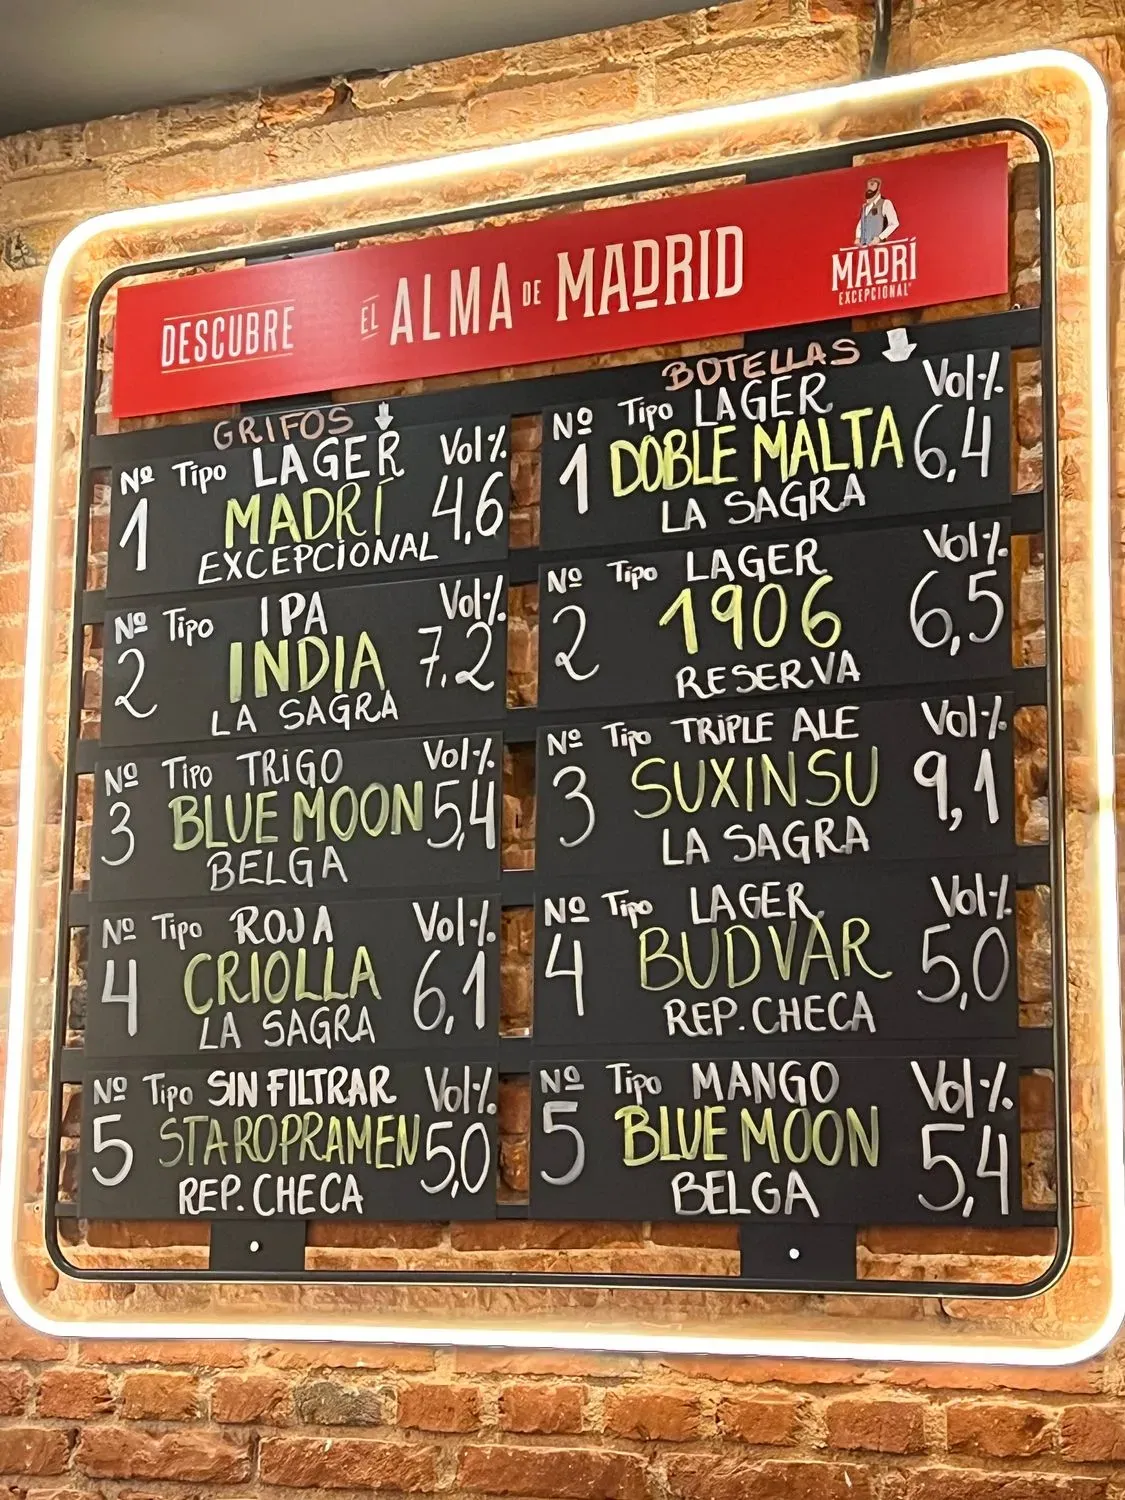 DESCUBRE EL ALMA DE MADRID
MADRÍ
EXCEPCIONAL
GRIFOS
Nº Tipo LAGER Vol%
1 MADRÍ 4,6
EXCEPCIONAL
Nº Tipo IPA Vol%
2 INDIA 7,2
LA SAGRA
Nº Tipo TRIGO Vol%
3 BLUE MOON 5,4
BELGA
Nº Tipo ROJA Vol%
4 CRIOLLA 6,1
LA SAGRA
Nº Tipo SIN FILTRAR Vol%
5 STAROPRAMEN 5,0
REP. CHECA
BOTELLAS
Nº Tipo LAGER Vol%
1 DOBLE MALTA 6,4
LA SAGRA
Nº Tipo LAGER Vol%
2 1906 6,5
RESERVA
Nº Tipo TRIPLE ALE Vol%
3 SUXINSU 9,1
LA SAGRA
Nº Tipo LAGER Vol%
4 BUDVAR 5,0
REP. CHECA
Nº Tipo MANGO Vol%
5 BLUE MOON 5,4
BELGA